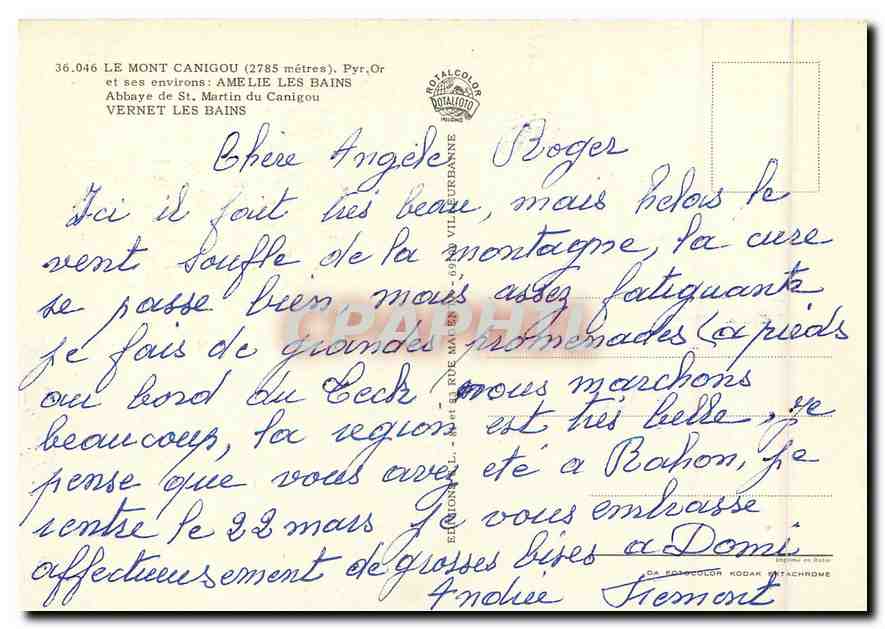 36.046 LE MONT CANIGOU (2785 métres). Pyr.Or
et ses environs: AMELIE LES BAINS
Abbaye de St. Martin du Canigou
VERNET LES BAINS
ROTALCOLOR
ROTALFOTO
MILANO
Chère Angèle Roger
Ici il fait très beau, mais helas le
vent soufle de la montagne, la cure
se passe bien, mais assez fatiguante
je fais de grandes promenades (a pieds
au bord du Tech nous marchons
beaucoup, la region est très belle, je
pense que vous avez eté a Rahon, je
rentre le 22 mars je vous embrasse
affectueusement de grosses bises a Domi
Andrée
EDITIONS L. - et 83 RUE MAGENTA - VILLEURBANNE
CPAPHIL
Imprimé en Italie
DA FOTOCOLOR KODAK EKTACHROME